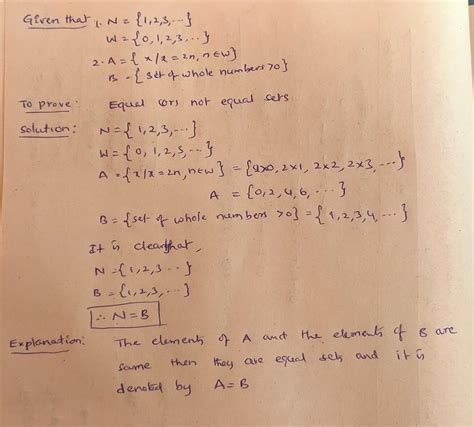 Given that 1. N = {1,2,3,...}
W = {0,1,2,3,...}
2. A = { x/x = 2n, n∈W}
B = {set of whole numbers >0}
To prove: Equal (or) not equal sets
Solution: N = {1,2,3,...}
W = {0,1,2,3,...}
A = {x/x=2n, n∈W} = {2x0, 2x1, 2x2, 2x3,...}
A = {0,2,4,6,...}
B = {set of whole numbers >0} = {1,2,3,4,...}
It is clear that,
N = {1,2,3...}
B = {1,2,3,...}
∴ N = B
Explanation: The elements of A and the elements of B are
same then they are equal sets and it is
denoted by A = B